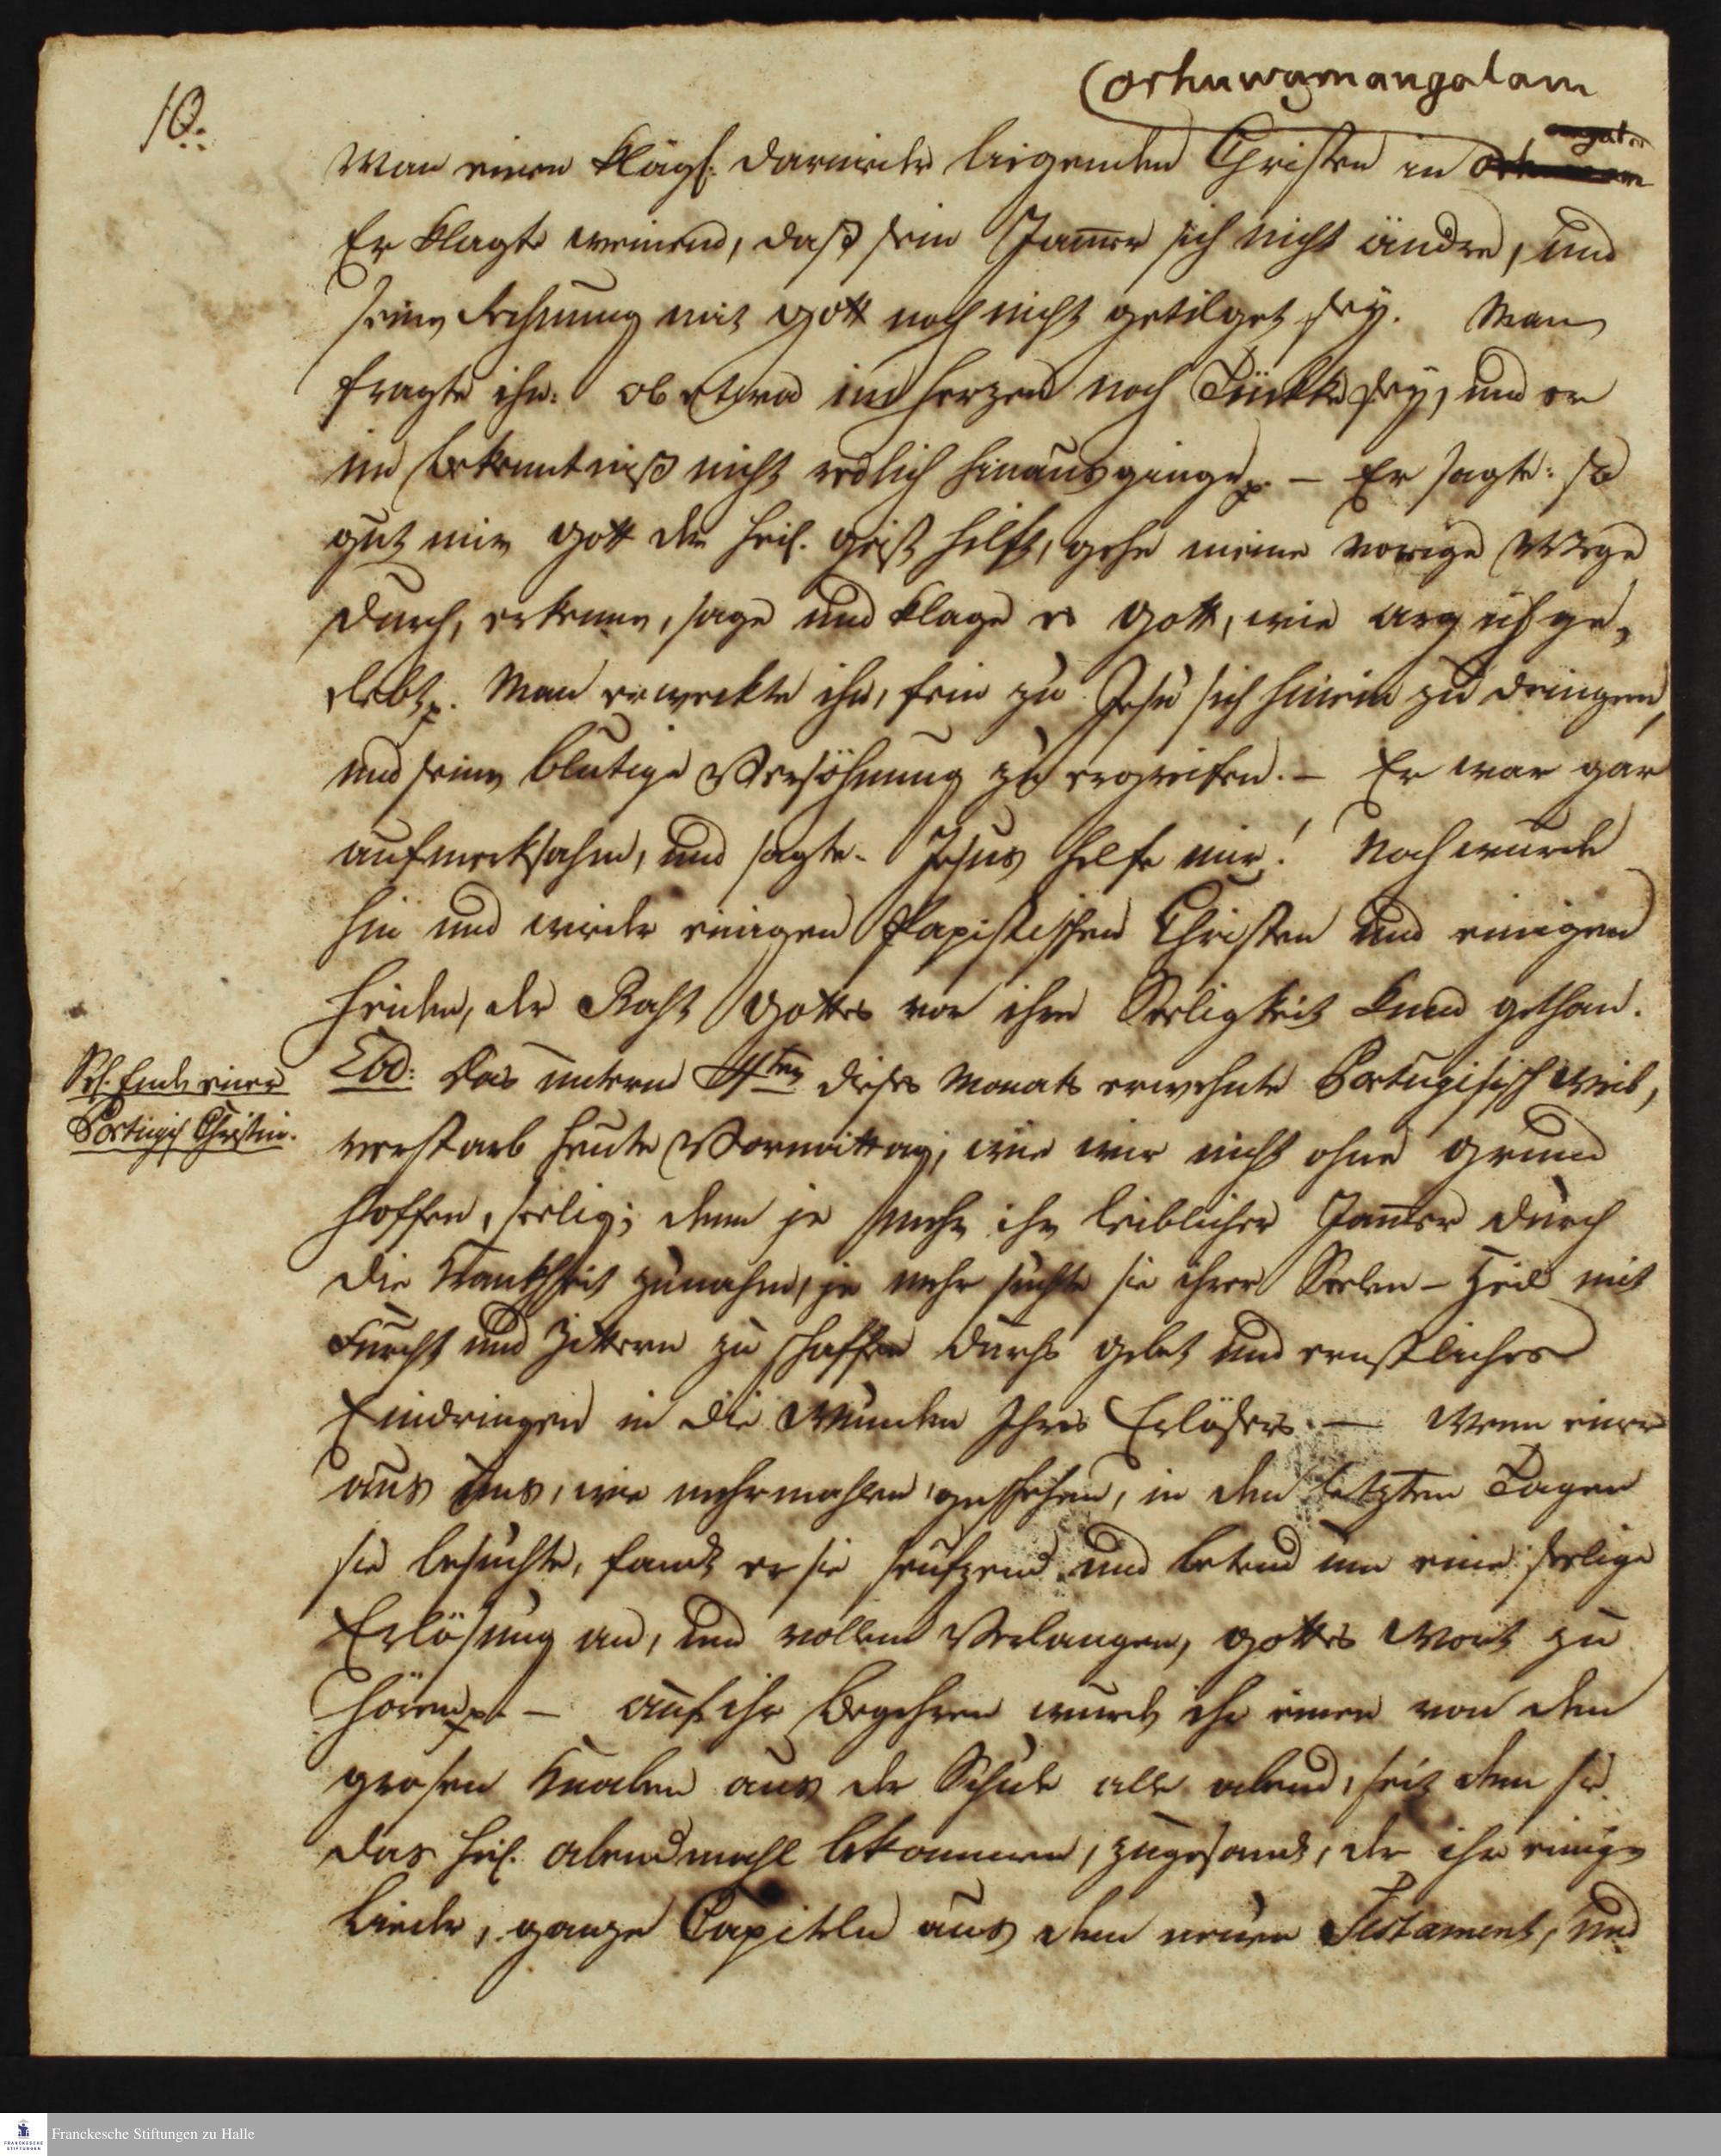 10.
Orhuwamangalam
Man einen klägl. darnieder liegenden Christen in
Er klagte weinend, daß sein Jam̅er sich nicht ändre, und
seine Rechnung mit Gott noch nicht getilget sey. Man
fragte ihn: ob etwa im Herzen noch Tücke sey, und er
im Bekenntniß nicht redlich hinausginge p. – Er sagte: so
gut mir Gott der Heil. Geist hilft, gehe meine vorige Wege
durch, erkenne, sage und klage es Gott, wie arg ich ge,
lebt p. Man erweckte ihn, fein zu Jesu sich hinein zu dringen,
und seine blutige Versöhnung zu ergreifen. – Er war gar
aufmerksahm, und sagte. Jesus helfe mir! Noch wurde
hin und wieder einigen Papistischen Christen und einigen
Heiden, der Raht Gottes von ihrer Seeligkeit kund gethan.
Sel. Ende einer
Portugis. Christin.
Eod: Das unterm 4ten dieses Monats erwehnte Portugisisch Weib,
verstarb heute Vormittag, wie wir nicht ohne Grund
hoffen, seelig; denn je mehr ihr leiblicher Jam̅er durch
die Krankheit zunahm, je mehr suchte sie ihrer Seelen-Heil mit
Furcht und Zittern zu schaffen durchs Gebet und ernstliches
Eindringen in die Wunden Ihres Erlösers. – Wenn einer
aus uns, wie mehrmahlen geschehen, in den letzten Tagen
sie besuchte, fandt er sie seufzend und betend um eine seelige
Erlösung an, und vollem Verlangen, Gottes Wort zu
hören p. – Auf ihr Begehren wurde ihr einer von den
grosen Knaben aus der Schule alle Abend, seit dem sie
das Heil. Abendmahl bekommen, zugesandt, der ihr einige
Lieder, ganze Capitln aus dem neuen Testament, und
Franckesche Stiftungen zu Halle
FRANCKESCHE
STIFTUNGEN